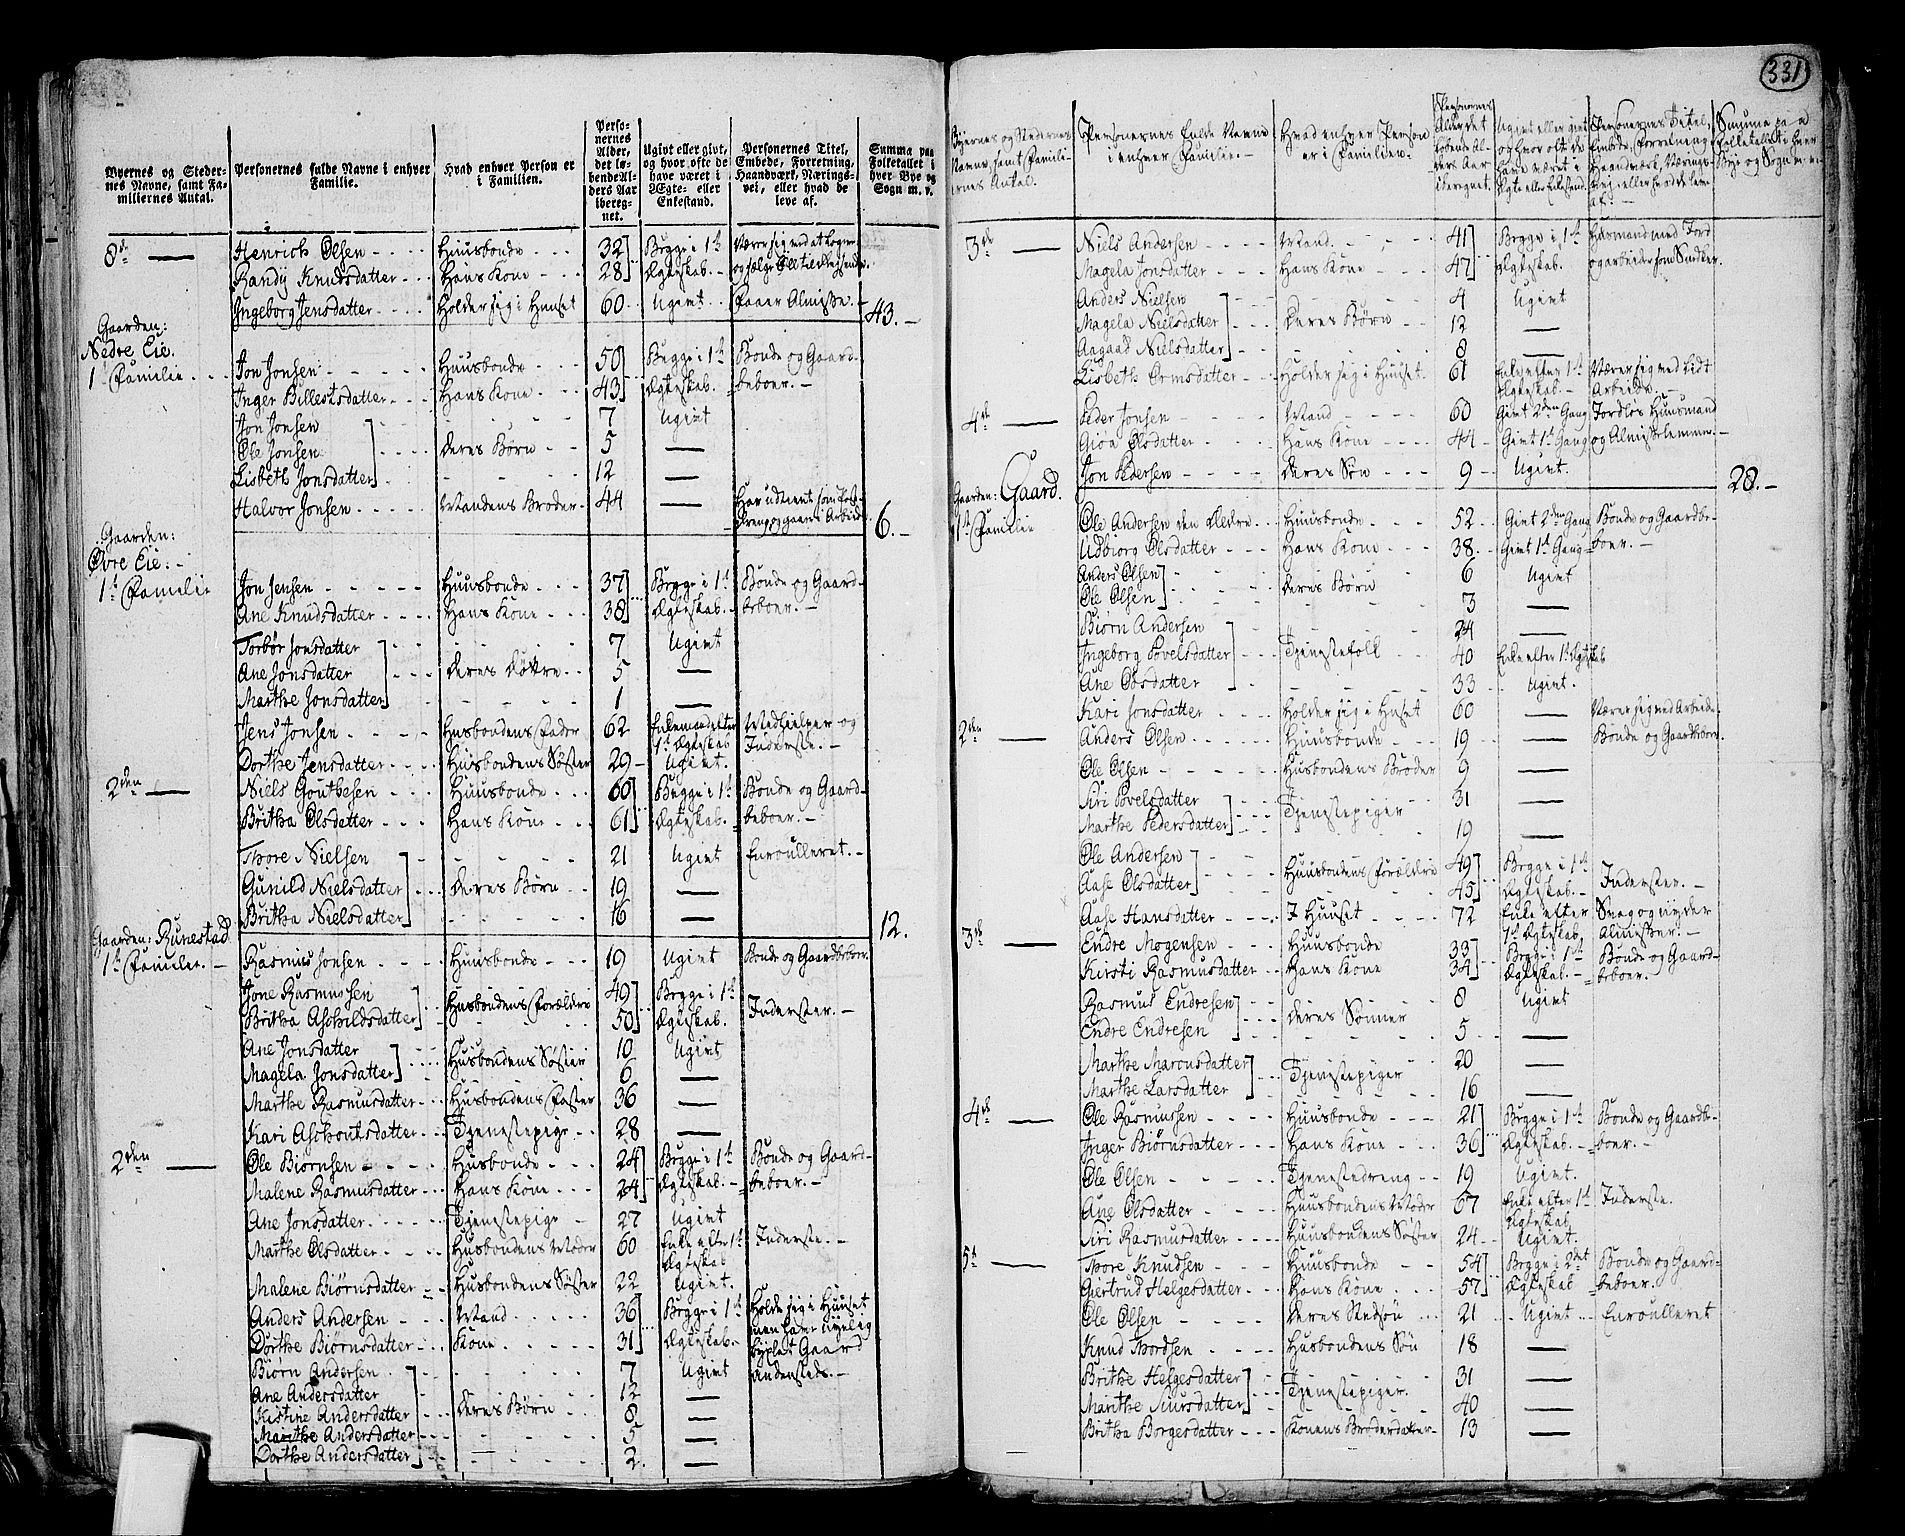 331
Byernes og Stedernes Navne, samt Familiernes Antal. | Personernes fulde Navne i enhver Familie. | Hvad enhver Person er i Familien. | Personernes Alder, det løbende Alders Aar iberegnet. | Ugivt eller givt, og hvor ofte de have været i Ægte- eller Enkestand. | Personernes Titel, Embede, Forretning, Haandværk, Næringsvei, eller hvad de leve af. | Summa paa Folketallet i hver Bye og Sogn m. v.
8de — Henrich Olsen Huusbonde 32 Begge i 1te
Randj Knudsdatter Hans Kone 28 Ægteskab.
Ingeborg Jensdatter Holder sig i Huuset 60 Ugivt Faaer Almisse 43.
Gaarden:
Nedre Eie.
1 Familie
Jon Jonsen Huusbonde 50 Begge i 1te Bonde og Gaard-
Inger Billestsdatter Hans Kone 43 Ægteskab. beboer.
Jon Jonsen 7 Ugivt
Ole Jonsen Deres Børn 5 —
Lisbeth Jonsdatter 12 —
Halvor Jonsen Mandens Broder 44 — 6.
Gaarden:
Øvre Eie.
1te Familie Jon Jensen Huusbonde 37 Begge i 1te Bonde og Gaard-
Ane Knudsdatter Hans Kone 38 Ægteskab. beboer.
Torbør Jonsdatter 7 Ugivt
Ane Jonsdatter Deres Døttre 5 —
Marthe Jonsdatter 1 —
Jens Jonsen Husbondens Fader 62 Enkemand efter Medhielper og
1te Ægteskab Inderste.
Dorthe Jensdatter Huusbondens Søster 29 Ugivt.
2den — Niels Goutbesen Huusbonde 60 Begge i 1te Bonde og Gaard-
Britha Olsdatter Hans Kone 61 Ægteskab. beboer.
Thore Nielsen 21 Ugivt Enroulleret.
Gunild Nielsdatter Deres Børn 19 —
Britha Nielsdatter 16 — 12.
Gaarden: Runestad
1te Familie. Rasmus Jonsen Huusbonde 19 Ugivt Bonde og Gaardbeboer.
Jone Rasmussen Husbondens Forældre 49 Begge i 1te
Britha Aschildsdatter 50 Ægteskab. Inderster.
Ane Jonsdatter Huusbondens Søster 10 Ugivt
Magela Jonsdatter 6 —
Marthe Rasmusdatter Husbondens Faster 36 —
Kari Aschoutsdatter Tjenestepige 28 —
2den — Ole Biørnsen Husbonde 24 Begge i 1te Bonde og Gaard-
Malene Rasmusdatter Hans Kone 24 Ægteskab. beboer.
Ane Jonsdatter Tjenestepige 27 Ugivt
Marthe Olsdatter Husbondens Moder 60 Enke efter 1te Inderste.
Ægteskab
Malene Biørnsdatter Husbondens Søster 22 Ugivt.
Anders Andersen Mand 36 Begge i 1te Holde sig i Huuset
Dorthe Biørnsdatter Kone 31 Ægteskab. men haver nyelig
Gaard
Biørn Andersen 7 Ugivt andensteds.
Ane Andersdatter 12 —
Kistine Andersdatter Deres Børn 8 —
Marthe Andersdatter 5 —
Dorthe Andersdatter 2 —
Byernes og Stedernes Navne, samt Familiernes Antal. | Personernes fulde Navne i enhver Familie. | Hvad enhver Person er i Familien. | Personernes Alder det løbende Alders Aar iberegnet. | Ugivt eller givt og hvor ofte de have været i Ægte eller Enkestand. | Personernes Titel, Embede, Forretning, Haandværk, Næringsvei eller hvad de leve af. | Summa paa Folketallet i hver Bye og Sogn m. v.
3de — Niels Andersen Mand 41 Begge i 1te Huusmand med Jord
Magela Jonsdatter Hans Kone 47 Ægteskab. og arbeider som Snedker.
Anders Nielsen 4 Ugivt
Magela Nielsdatter Deres Børn 12 —
Aagaad Nielsdatter 8 —
Lisbeth Ormsdatter Holder sig i Huuset 61 Enke efter 1te Nærer sig med lidt
Ægteskab. Arbeide.
4de — Peder Jonsen Mand 60 Givt 2den Gang Jordløs Huusmand
Gioa Olsdatter Hans Kone 44 Givt 1te Gang og Almisselemmer.
Jon Pedersen Deres Søn 9 Ugivt. 28.
Gaarden: Gaard.
1te Familie Ole Andersen den Ældre Huusbonde 52 Givt 2den Gang Bonde og Gaardbe-
Udbiorg Olsdatter Hans Kone 38 Givt 1te Gang boer.
Anders Olsen Deres Børn 6 Ugivt
Ole Olsen 3 —
Biørn Andersen 24 —
Ingeborg Povelsdatter Tjenestefolk 40 Enke efter 1te Ægteskab
Ane Olsdatter 33 Ugivt.
Kari Jonsdatter Holder sig i Huset 60 — Nærer sig med Arbeide.
2den — Anders Olsen Huusbonde 19 — Bonde og Gaardbeboer.
Ole Olsen Husbondens Broder 9 —
Siri Povelsdatter Tjenestepiger 31 —
Marthe Pedersdatter 19 —
Ole Andersen Huusbondens Forældre 49 Begge i 1te
Aase Olsdatter 45 Ægteskab. Inderster.
Aase Hansdatter I Huuset 72 Enke efter Svag og nyder
1te Ægteskab. Almisse.
3de — Endre Mogensen Huusbonde 33 Begge i 1te Bonde og Gaard-
Kirsti Rasmusdatter Hans Kone 34 Ægteskab. beboer.
Rasmus Endresen Deres Sønner 8 Ugivt
Endre Endresen 5 —
Marthe Marcusdatter Tjenestepiger 20 —
Marthe Larsdatter 16 —
4de — Ole Rasmussen Huusbonde 21 Begge i 1te Bonde og Gaardbe-
Inger Biørnsdatter Hans Kone 36 Ægteskab. boer.
Ole Olsen Tjenestedreng 19 Ugivt.
Ane Olsdatter Huusbondens Moder 67 Enke efter 1te Inderste.
Ægteskab
Siri Rasmusdatter Huusbondens Søster 24 Ugivt.
5te — Thore Knudsen Huusbonde 54 Begge i 2det Bonde og Gaard-
Giertrud Helgesdatter Hans Kone 57 Ægteskab beboer.
Ole Olsen Deres Stedsøn 21 Ugivt Enroulleret
Knud Thordsen Husbondens Søn 18 —
Brithe Helgesdatter Tjenestepiger. 31 —
Marithe Siursdatter 40 —
Britha Borgesdatter Konens Broderdatter 13 —